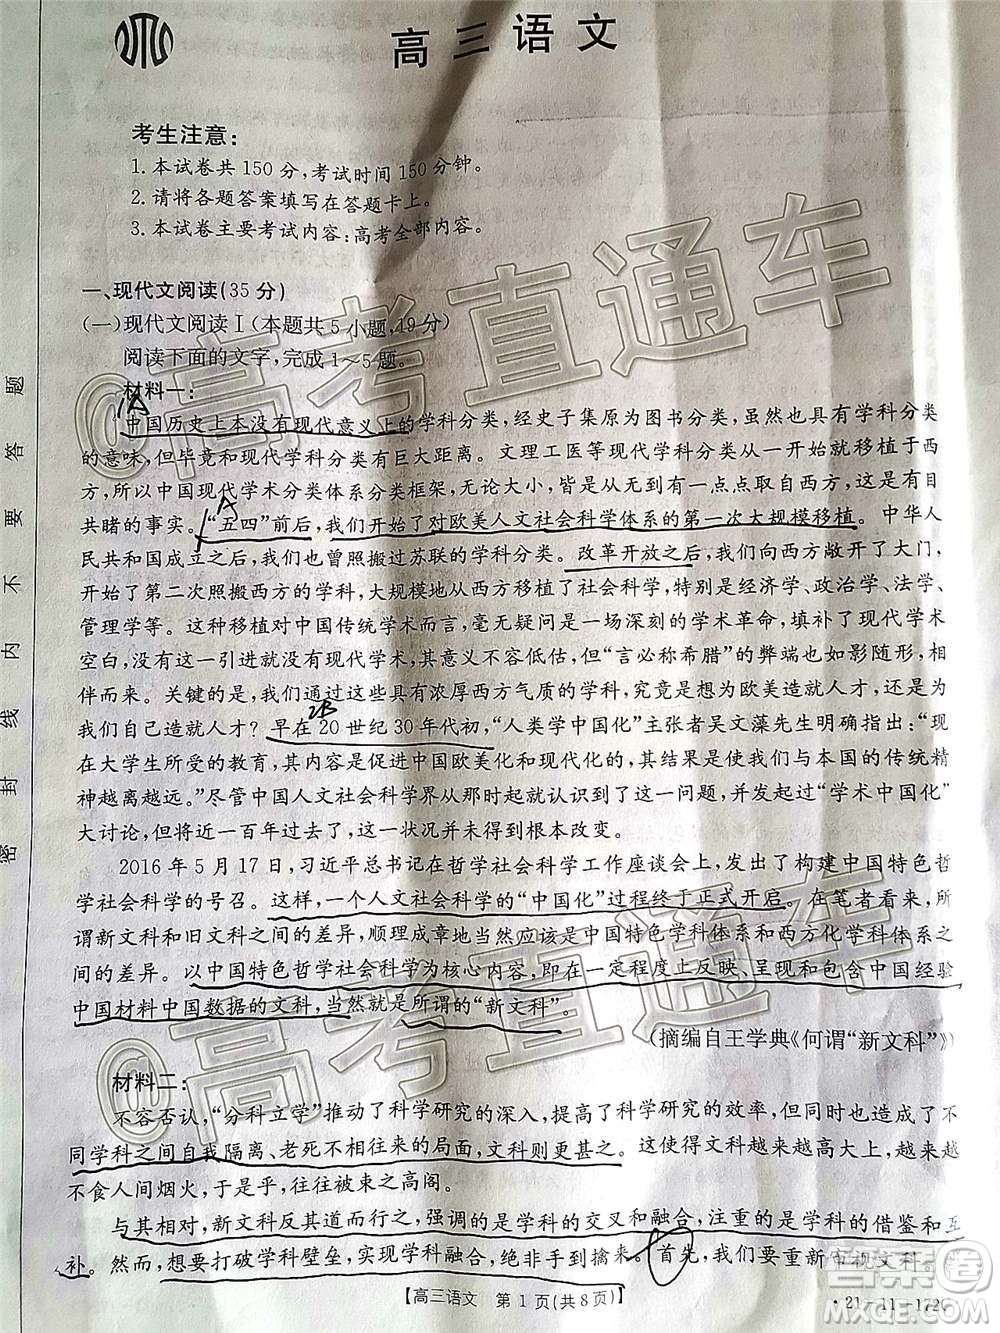 高三语文
考生注意:
1.本试卷共150分,考试时间150分钟。
2.请将各题答案填写在答题卡上。
3.本试卷主要考试内容:高考全部内容。
一、现代文阅读(35分)
(一)现代文阅读Ⅰ(本题共5小题,19分)
阅读下面的文字,完成1~5题。
材料一:
中国历史上本没有现代意义上的学科分类,经史子集原为图书分类,虽然也具有学科分类
的意味,但毕竟和现代学科分类有巨大距离。文理工医等现代学科分类完全是从西
方,所以中国现代学术分类体系分类框架,无论大小,皆是从西方一点一点移入的,这是有目
共睹的事实。“五四”前后,我们开始了对欧美人文社会科学体系的第一次大规模移植。中华人
民共和国成立之后,我们也曾照搬过苏联的学科分类。改革开放之后,我们向西方敞开了大门,
开始了第二次照搬西方的学科,大规模地从西方移植了社会科学,特别是经济学、政治学、法学、
管理学等。这种移植对中国传统学术而言,毫无疑问是一场深刻的学术革命,填补了学术
空白,因而没有这一引进就没有现代学术,成就不容低估,但“言必称希腊”的弊端也如影随形,相
伴而来。关键的是,我们通过这些具有浓厚西方气质的学科,到底是为欧美造就人才,还是为
我们自己造就人才?早在20世纪30年代初,“人类学中国化”主张者吴文藻先生明确指出:“现
在大学生所受的教育,其内容是促进中国欧美化和现代化的,其结果是使我们与本国的传统精
神越离越远。”尽管中国人文社会科学界从那时起就认识到了这一问题,并发起“学术中国化”
大讨论,但将近一百年过去了,这一状况并未得到根本改变。
2016年5月17日,习近平总书记在哲学社会科学工作座谈会上,发出了构建中国特色哲
学社会科学的号召。这样,一个人文社会科学的“中国化”过程终于正式开启。在笔者看来,所
谓新文科和旧文科之间的差异,顺理成章地当然应该是中国特色学科体系和西方化学科体系之
间的差异。以中国特色哲学社会科学为核心内容,即在一定程度上反映、呈现和包含中国经验
中国材料中国数据的文科,当然就是所谓的“新文科”。
(摘编自王学典《何谓“新文科”》)
材料二:
不容否认,“分科立学”推动了科学研究的深入,提高了科学研究的效率,但也造成了不
同学科之间自我隔离、老死不相往来的局面,文科则更甚之。这使得文科越来越高大上,越来越
不食人间烟火,于是乎,往往被束之高阁。
与其相对,新文科反其道而行之,强调的是学科的交叉和融合,注重的是学科的借鉴和互
补。然而,想要打破学科壁垒,实现学科融合,绝非手到擒来。首先,我们要重新审视文科。
【高三语文 第1页(共8页)】
·21-11-172C·
密封线内不要答题
@高考直通车
@高考直通车
答案圈
A
A
2B